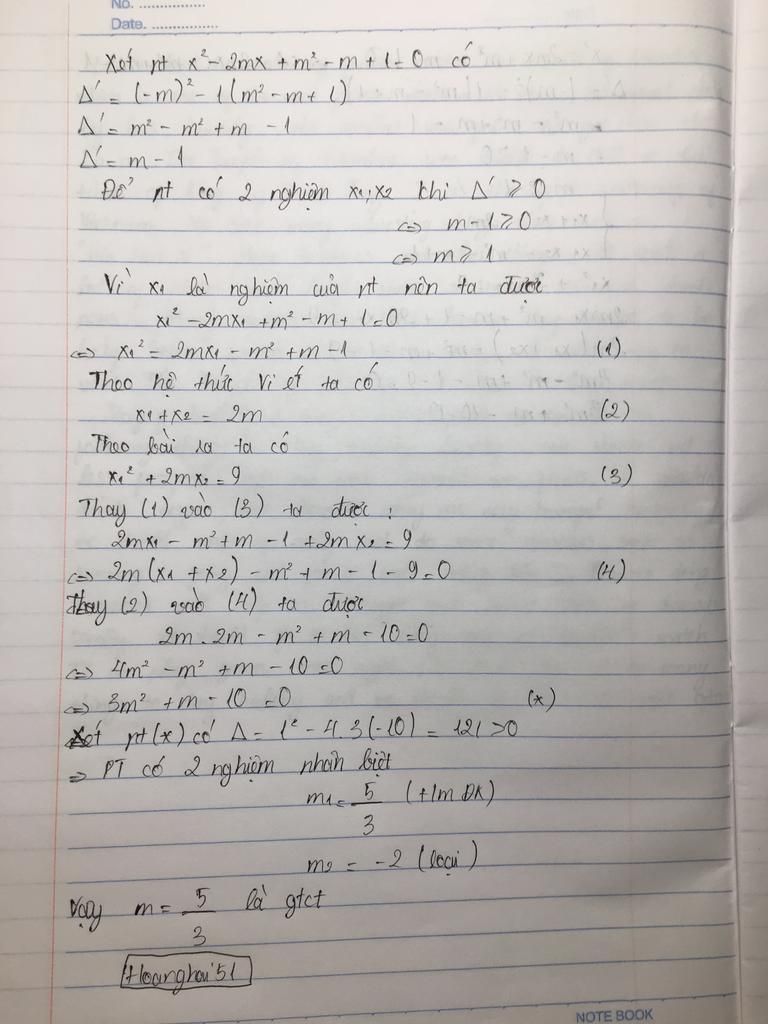 No. ................
Date. ................
Xét pt x² - 2mx + m² - m + 1 = 0 có
Δ' = (-m)² - 1(m² - m + 1)
Δ' = m² - m² + m - 1
Δ' = m - 1
Để pt có 2 nghiệm x₁, x₂ khi Δ' ⩾ 0
⇔ m - 1 ⩾ 0
⇔ m ⩾ 1
Vì x₁ là nghiệm của pt nên ta được
x₁² - 2mx₁ + m² - m + 1 = 0
⇔ x₁² = 2mx₁ - m² + m - 1 (1)
Theo hệ thức Vi ét ta có
x₁ + x₂ = 2m (2)
Theo bài ra ta có
x₁² + 2mx₂ = 9 (3)
Thay (1) vào (3) ta được :
2mx₁ - m² + m - 1 + 2mx₂ = 9
⇔ 2m(x₁ + x₂) - m² + m - 1 - 9 = 0 (4)
Thay (2) vào (4) ta được
2m . 2m - m² + m - 10 = 0
⇔ 4m² - m² + m - 10 = 0
⇔ 3m² + m - 10 = 0 (*)
Xét pt(*) có Δ = 1² - 4.3(-10) = 121 > 0
⇒ PT có 2 nghiệm phân biệt
m₁ = 5/3 (t/m ĐK)
m₂ = -2 (loại)
Vậy m = 5/3 là gtct
Hoanghai'51
NOTE BOOK